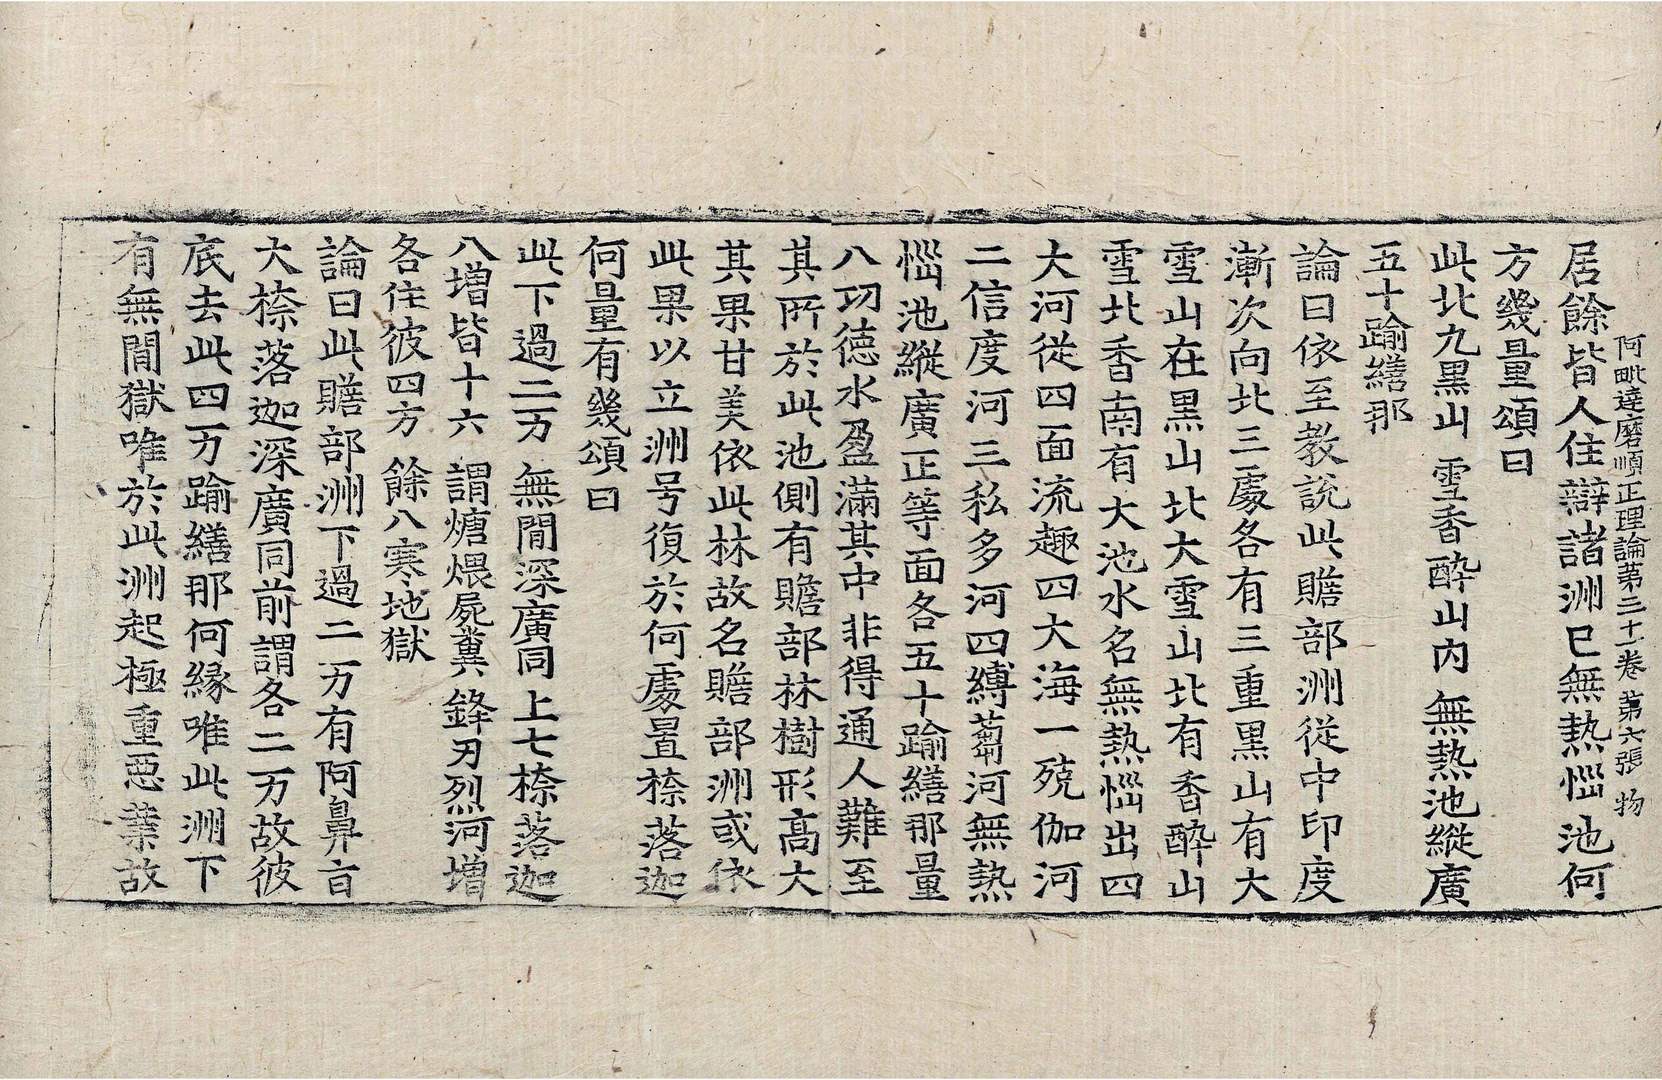 阿毗達磨順正理論第三十一卷 第六張 物
居餘皆人住辯諸洲已無熱惱池何
方幾量頌曰
此北九黑山 雪香醉山內 無熱池縱廣
五十踰繕那
論曰依至教說此贍部洲從中印度
漸次向北三處各有三重黑山有大
雪山在黑山北大雪山北有香醉山
雪北香南有大池水名無熱惱出四
大河從四面流趣四大海一殑伽河
二信度河三私多河四縛蒭河無熱
惱池縱廣正等面各五十踰繕那量
八功德水盈滿其中非得通人難至
其所於此池側有贍部林樹形高大
其果甘美依此林故名贍部洲或依
此果以立洲号復於何處置㮈落迦
何量有幾頌曰
此下過二万 無間深廣同 上七㮈落迦
八增皆十六 謂煻煨屍糞 鋒刃烈河增
各住彼四方 餘八寒地獄
論曰此贍部洲下過二万有阿鼻旨
大㮈落迦深廣同前謂各二万故彼
底去此四万踰繕那何緣唯此洲下
有無間獄唯於此洲起極重惡業故